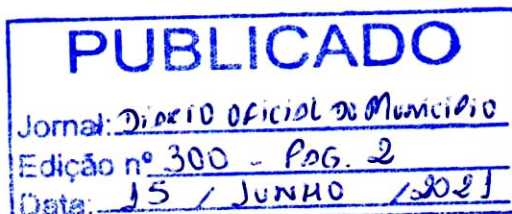 PUBLICADO
Jornal: DIARIO OFICIAL DO MUNICIPIO
Edição nº 300 - PAG. 2
Data: 15 / JUNHO / 2021